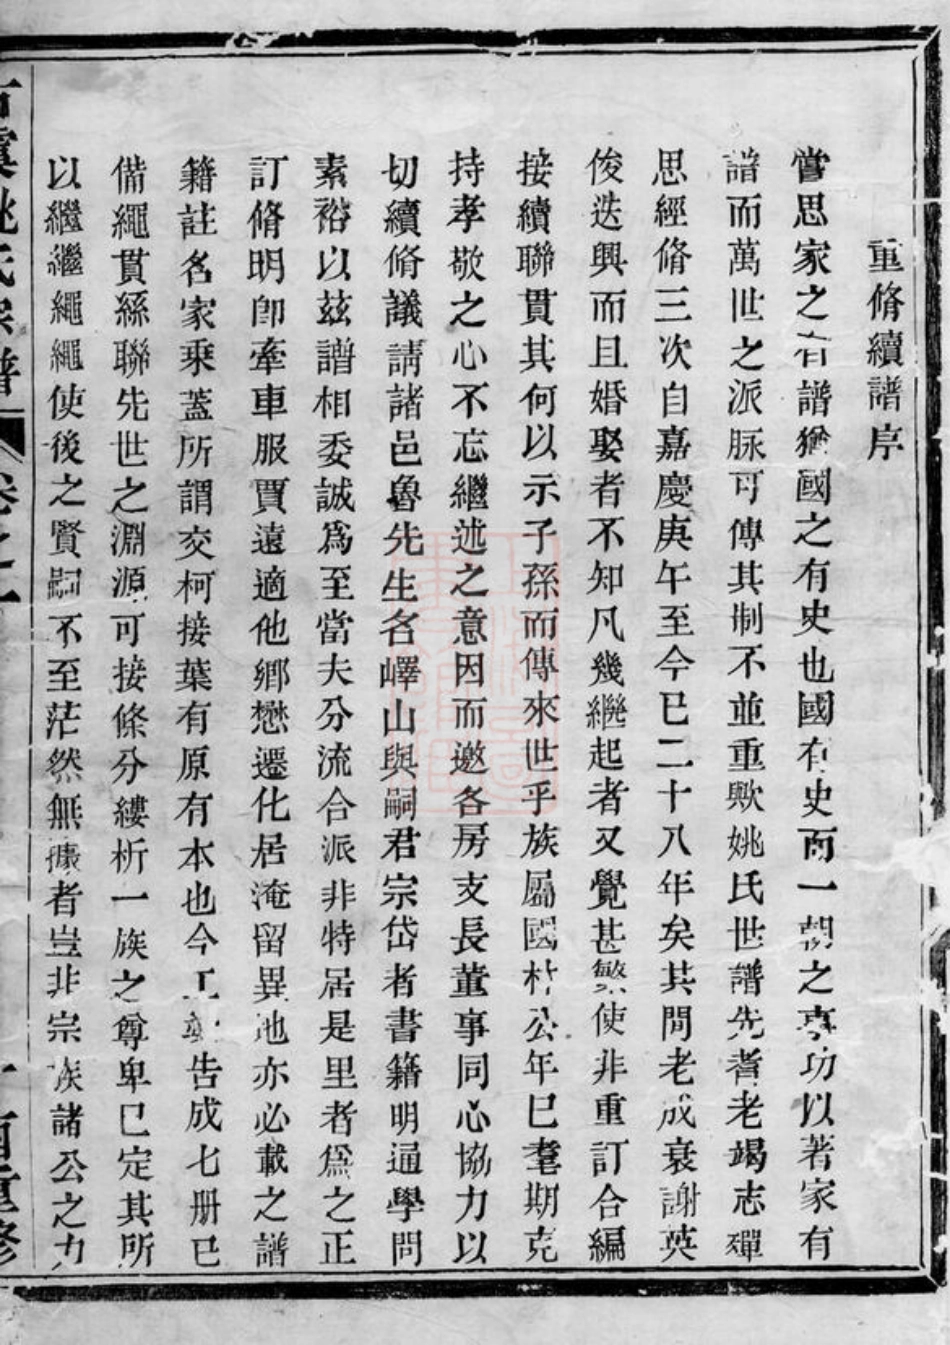 重脩續譜序
嘗思家之有譜猶國之有史也國有史而一朝之事功以著家有
譜而萬世之派脉可傳其制不並重歟姚氏世譜先耆老竭志殫
思經脩三次自嘉慶庚午至今已二十八年矣其間老成衰謝英
俊迭興而且婚娶者不知凡幾繼起者又覺甚繁使非重訂合編
接續聯貫其何以示子孫而傳來世乎族屬國材公年已耄期克
持孝敬之心不忘繼述之意因而邀各房支長董事同心協力以
切續脩議請諸邑魯先生名嶧山與嗣君宗岱者書籍明通學問
素裕以茲譜相委誠爲至當夫分流合派非特居是里者爲之正
訂脩明卽牽車服賈遠適他鄉懋遷化居淹留異地亦必載之譜
籍註名家乘蓋所謂交柯接葉有原有本也今工告成七册已
備繩貫絲聯先世之淵源可接條分縷析一族之尊卑已定其所
以繼繼繩繩使後之賢嗣不至茫然無據者豈非宗族諸公之力
古虞姚氏宗譜 卷之一 酉重修